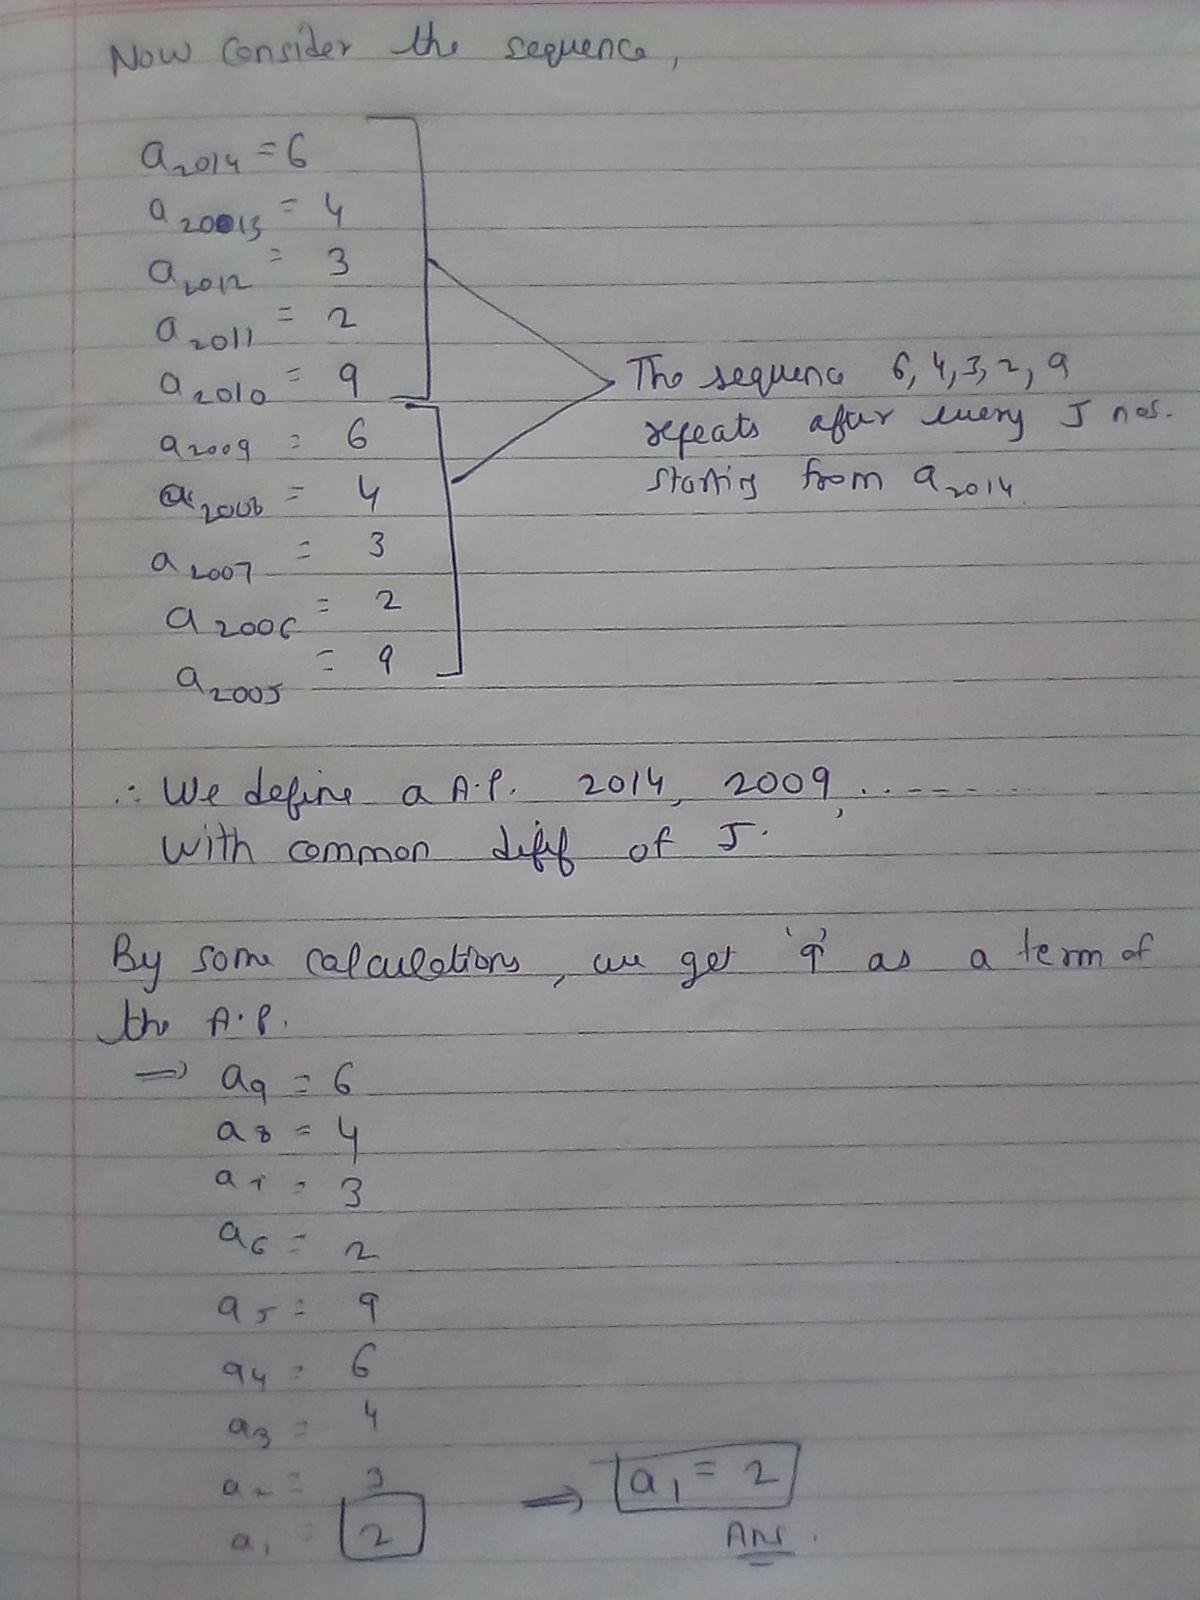 Now consider the sequence,
a2014 = 6
a2013 = 4
a2012 = 3
a2011 = 2
a2010 = 9
a2009 = 6
a2008 = 4
a2007 = 3
a2006 = 2
a2005 = 9
The sequence 6, 4, 3, 2, 9
repeats after every 5 nos.
starting from a2014
∴ We define a A.P. 2014, 2009, ........
with common diff of 5.
By some calculations, we get '9' as a term of
the A.P.
⇒ a9 = 6
a8 = 4
a7 = 3
a6 = 2
a5 = 9
a4 = 6
a3 = 4
a2 = 3
a1 = 2 ⇒ a1 = 2
Ans.